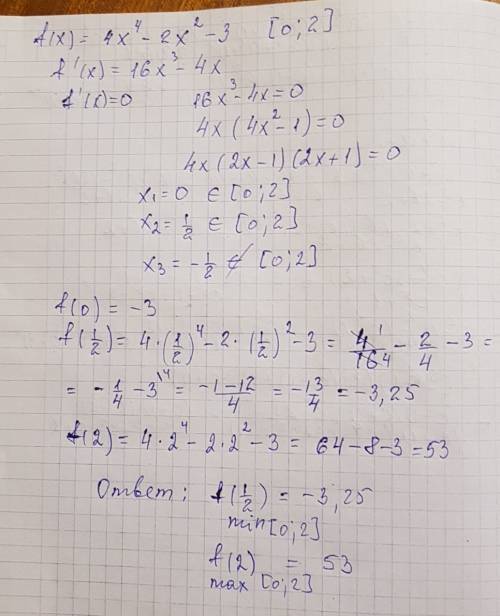 f(x) = 4x⁴ - 2x² - 3 [0;2]
f'(x) = 16x³ - 4x
f'(x)=0 16x³ - 4x = 0
4x (4x² - 1) = 0
4x (2x - 1)(2x + 1) = 0
x₁ = 0 ∈ [0;2]
x₂ = 1/2 ∈ [0;2]
x₃ = -1/2 ∉ [0;2]
f(0) = -3
f(1/2) = 4·(1/2)⁴ - 2·(1/2)² - 3 = 4¹/16₄ - 2/4 - 3 =
= -1/4 - 3^14 = (-1-12)/4 = -13/4 = -3,25
f(2) = 4·2⁴ - 2·2² - 3 = 64 - 8 - 3 = 53
Ответ: f(1/2) = -3,25
min [0;2]
f(2) = 53
max [0;2]